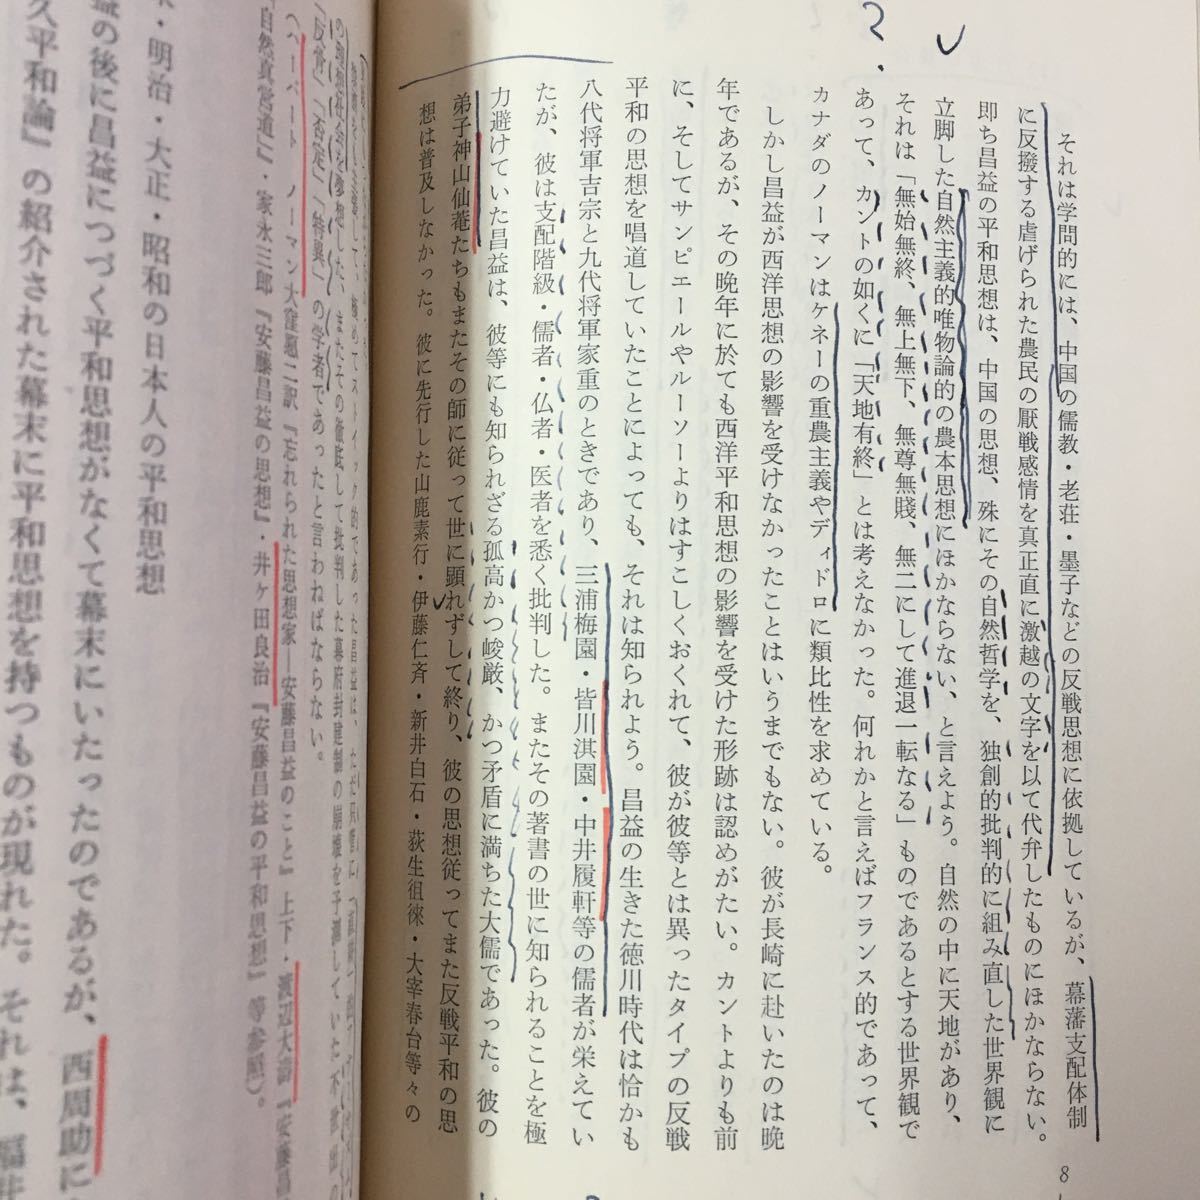 それは学問的には、中国の儒教・老荘・墨子などの反戦思想に依拠しているが、幕藩支配体制
に反撥する虐げられた農民の厭戦感情を真正直に激越の文字を以て代弁したものにほかならない。
即ち昌益の平和思想は、中国の思想、殊にその自然哲学を、独創的批判的に組み直した世界観に
立脚した自然主義的唯物論的の農本思想にほかならない、と言えよう。自然の中に天地があり、
それは「無始無終、無上無下、無尊無賤、無二にして進退一転なる」ものであるとする世界観で
あって、カントの如くに「天地有終」とは考えなかった。何れかと言えばフランス的であって、
カナダのノーマンはケネーの重農主義やディドロに類比性を求めている。
しかし昌益が西洋思想の影響を受けなかったことはいうまでもない。彼が長崎に赴いたのは晩
年であるが、その晩年に於ても西洋平和思想の影響を受けた形跡は認めがたい。カントよりも前
に、そしてサンピエールやルーソーよりはすこしくおくれて、彼が彼等とは異ったタイプの反戦
平和の思想を唱道していたことによっても、それは知られよう。昌益の生きた徳川時代は恰かも
八代将軍吉宗と九代将軍家重のときであり、三浦梅園・皆川淇園・中井履軒等の儒者が栄えてい
たが、彼は支配階級・儒者・仏者・医者を悉く批判した。またその著書の世に知られることを極
力避けていた昌益は、彼等にも知られざる孤高かつ峻厳、かつ矛盾に満ちた大儒であった。彼の
弟子神山仙菴たちもまたその師に従って世に顕れずして終り、彼の思想従ってまた反戦平和の思
想は普及しなかった。彼に先行した山鹿素行・伊藤仁斉・新井白石・荻生徂徠・大宰春台等々の
8
の理想社会を夢想した、またその徹底して批判した幕府封建制の崩壊を予測していた
「反骨」「否定」「特異」の学者であったと言わねばならない。
（ハーバート ノーマン 大窪愿二訳『忘れられた思想家―安藤昌益のこと』上下・渡辺大濤『安藤昌
自然真営道』・家永三郎『安藤昌益の思想』・井ケ田良治『安藤昌益の平和思想』等参照）。
・明治・大正・昭和の日本人の平和思想
益の後に昌益につづく平和思想がなくて幕末にいたったのであるが、西周助に
久平和論」の紹介された幕末に平和思想を持つものが現れた。それは、福井